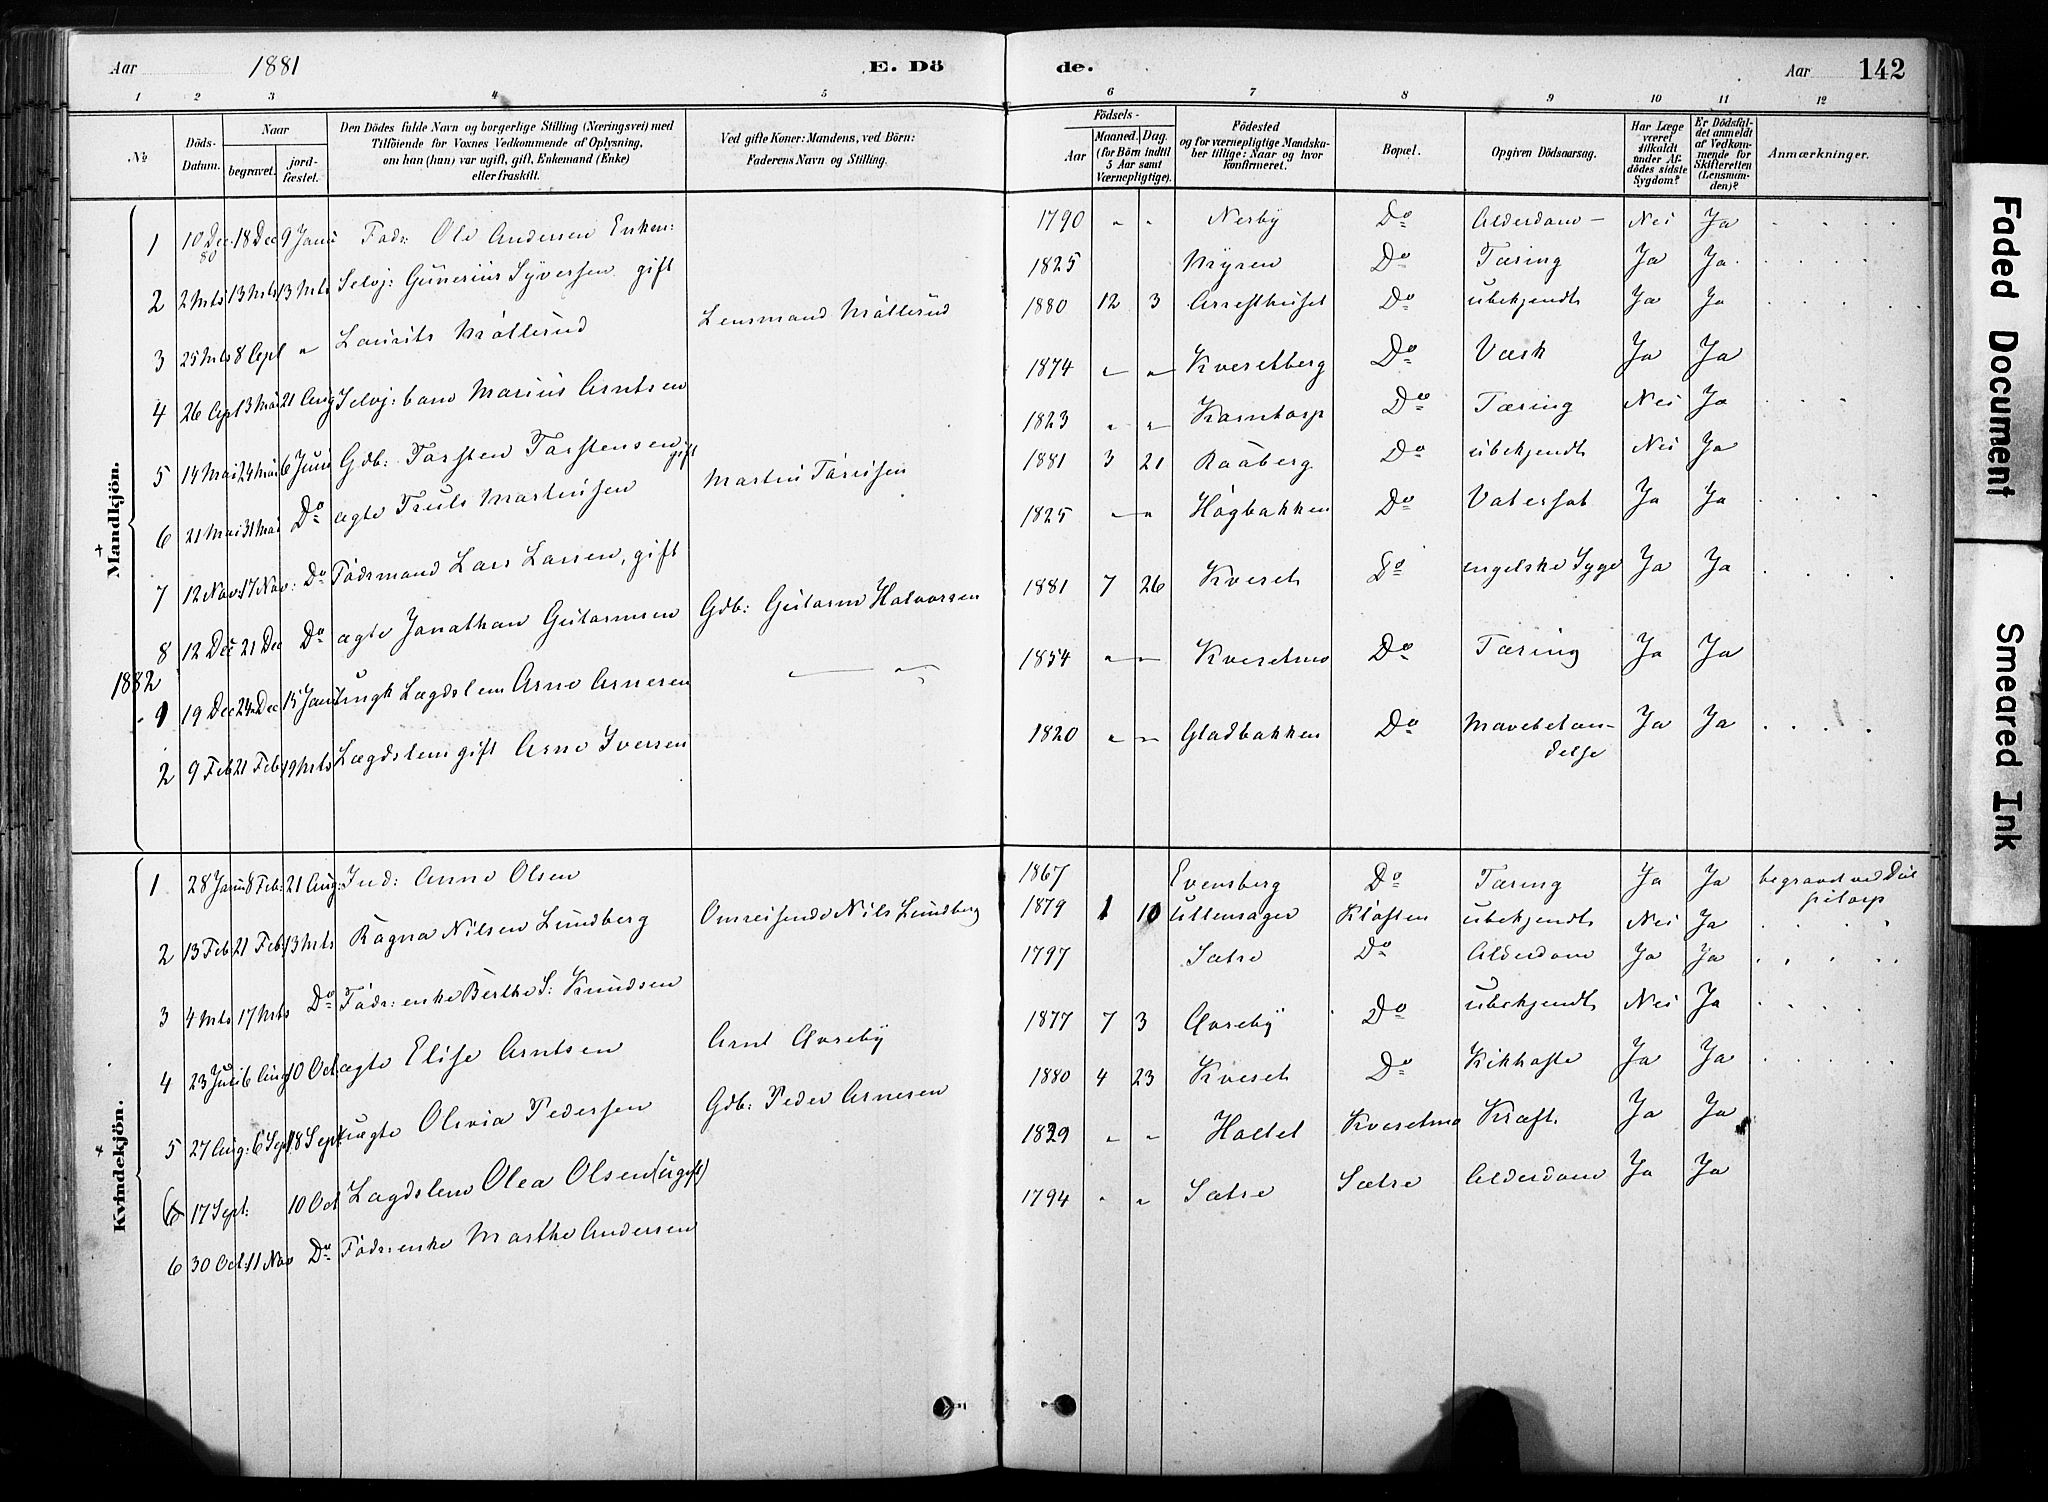 Aar 1881 E. Dö de. Aar 142
1 2 3 4 5 6 7 8 9 10 11 12
№
Döds-Datum.
Naar
begravet.
jord-fæstet.
Den Dödes fulde Navn og borgerlige Stilling (Næringsvei) med
Tilföiende for Voxnes Vedkommende af Oplysning,
om han (hun) var ugift, gift, Enkemand (Enke)
eller fraskilt.
Ved gifte Koner: Mandens, ved Börn:
Faderens Navn og Stilling.
Födsels-
Aar
Maaned. Dag.
(for Börn indtil
5 Aar samt
Værnepligtige).
Födested
og for værnepligtige Mandska-
ber tillige: Naar og hvor
konfirmeret.
Bopæl.
Opgiven Dödsaarsag.
Har Læge
været
tilkaldt
under Af-
dödes sidste
Sygdom?
Er Dödsfal-
det anmeldt
af Vedkom-
mende for
Skifteretten
(Lensman-
den)?
Anmærkninger.
Mandkjön.
1 10 Dec 80 18 Dec 9 Janu Fodr: Ole Andersen Enkem: 1790 " " Nerby Do Alderdom Nei Ja
2 2 Mrts 13 Mrts 13 Mrts Selvj: Gunerius Syversen gift 1825 Myren Do Tæring Ja Ja
3 25 Mrts 8 Apl " Laurits Möllerud Lensmand Möllerud 1880 12 3 Arresthuset Do ubekjendt Ja Ja
4 26 Apl 13 Mai 21 Aug Selvj: barn Marius Arntsen 1874 " " Kvesetberg Do Værk Ja Ja
5 14 Mai 24 Mai 6 Juni Gdb: Torsten Torstensen gift 1823 " " Korntorp Do Tæring Nei Ja
6 21 Mai 31 Mai Do ægte Truls Martinsen Martin Torersen 1881 3 21 Raaberg Do ubekjendt Nei Ja
7 12 Nov 17 Nov: Do Födsmand Lars Larsen, gift 1825 " " Högbakken Do Vatersot Ja Ja
8 12 Dec 21 Dec Do ægte Jonathan Gutormsen Gdb: Gutorm Halvorsen 1881 7 26 Kveset Do engelske Syge Ja Ja
1882
1 19 Dec 24 Dec 15 Jan Ungk Lægdslem Arne Arnesen " 1854 " " Kvesetmo Do Tæring Ja Ja
2 9 Feb 21 Feb 19 Mrts Lægdslem gift Arne Iversen 1820 " " Gladbakken Do Mavebetæn-
delse Ja Ja
Kvindekjön.
1 28 Janu 8 Feb: 21 Aug: Ind: Anne Olsen 1867 Evensberg Do Tæring Ja Ja begravet ved
2 13 Feb 21 Feb: 13 Mrts Ragna Nilsen Lundberg Omreisende Nils Lundberg 1879 1 10 Ullensager Klöften ubekjendt Nei Ja
3 4 Mrts 17 Mrts Do Födr: enke Berthe S: Knudsen 1797 Sætre Do Alderdom Ja Ja
4 23 Juli 6 Aug 10 Oct ægte Elise Arntsen Arnt Aurseby 1877 7 3 Aurseby Do ubekjendt Nei Ja
5 27 Aug: 6 Sept 18 Sept uægte Olivia Pedersen Gdb: Peder Arnesen 1880 4 23 Kveset Do Kikhoste Ja Ja
6 17 Sept: 10 Oct Lægdslem Olea Olsen (ugift) 1829 " " Holtet Kvesetmo Kræft. Ja Ja
6 30 Oct 11 Nov Do Födr: enke Marthe Andersen 1794 " " Sætre Sætre Alderdom Ja Ja
Faded Document
Smeared Ink